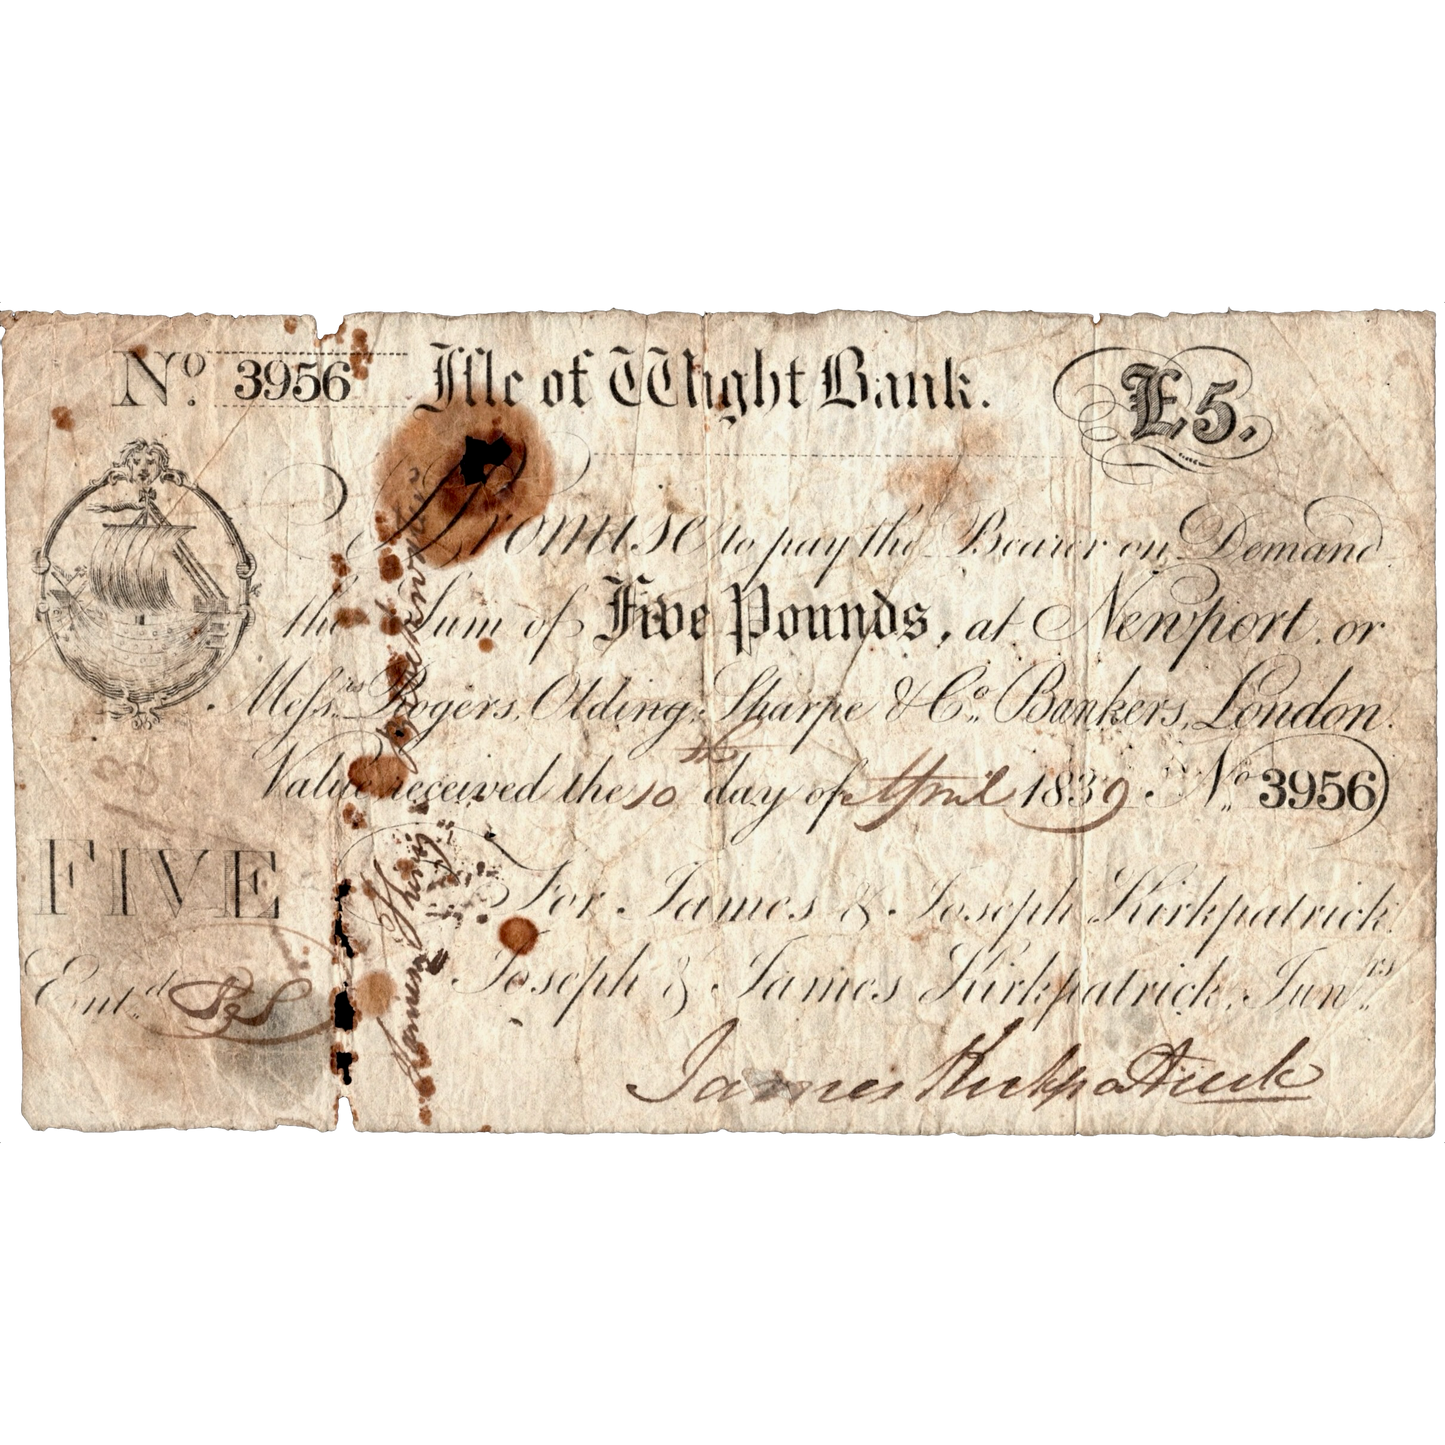 No. 3956 Isle of Wight Bank. £5,
I Promise to pay the Bearer on Demand
the Sum of Five Pounds, at Newport or
Messrs. Rogers, Olding, Sharpe & Co. Bankers, London.
Value received the 10th day of April 1839 No. 3956
FIVE
For James & Joseph Kirkpatrick
Entd.
Joseph & James Kirkpatrick, Junrs.
James Kirkpatrick